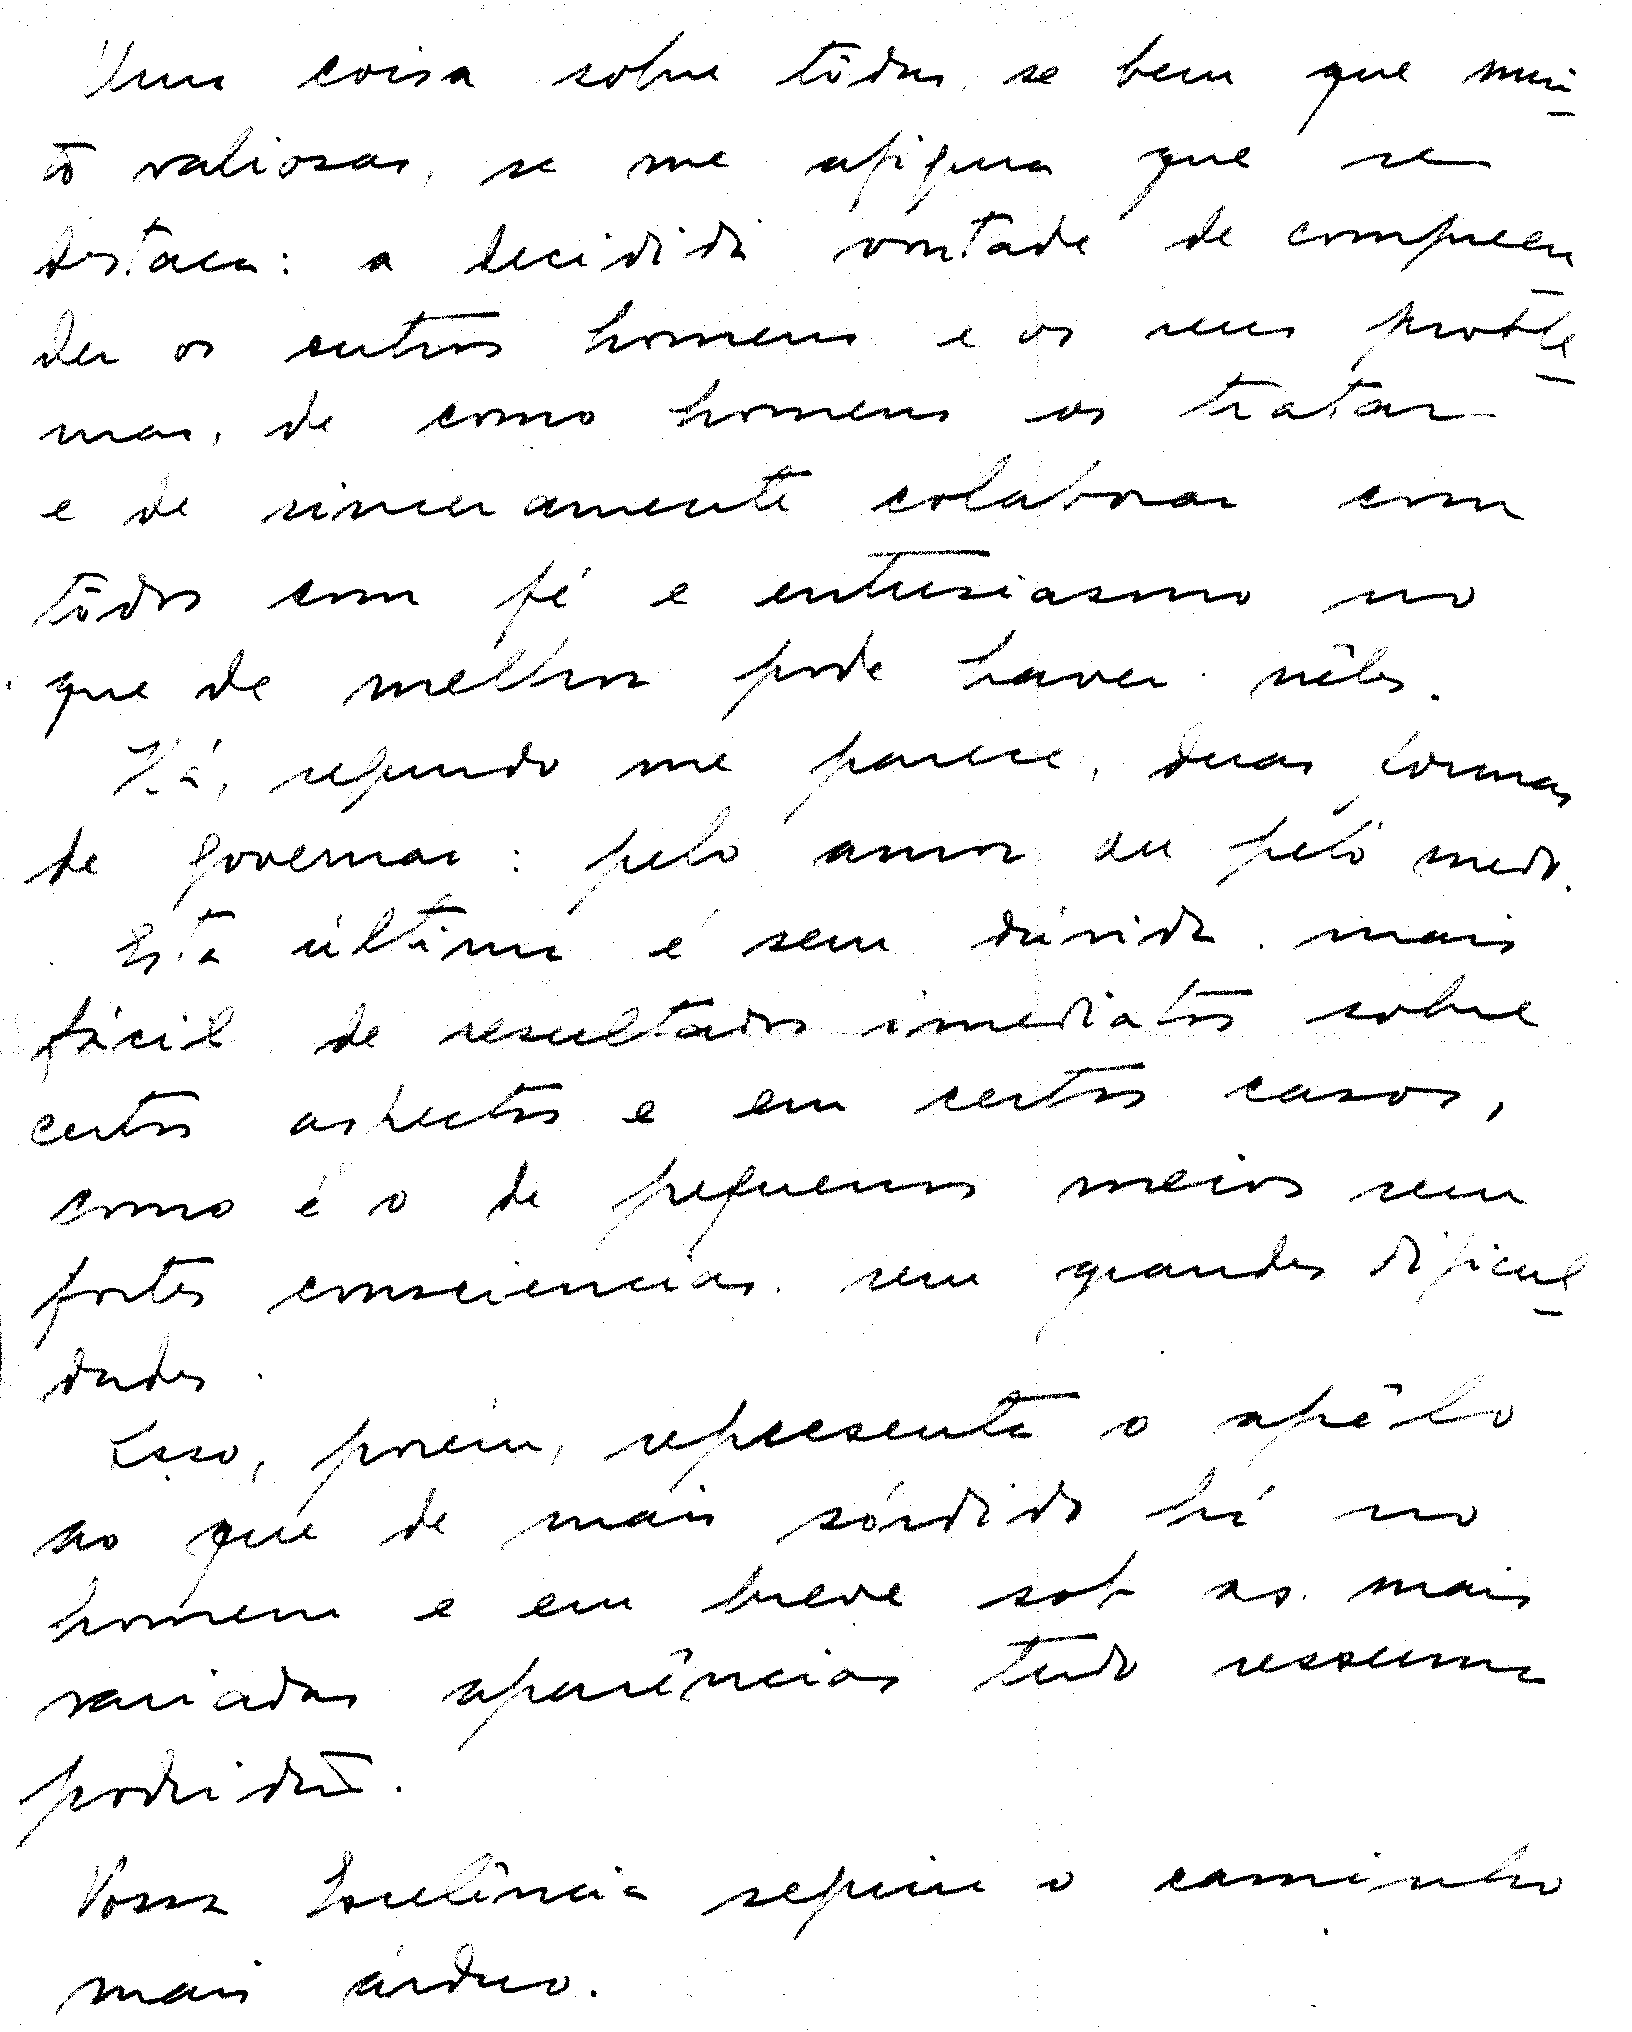 Uma coisa sobre tôdas, se bem que mui
to valiosas, se me afigura que se
destaca: a decidida vontade de compreen
der os outros homens e os seus proble
mas, de como homens os tratar
e de sinceramente colaborar com
todos com fé e entusiasmo no
que de melhor pode haver nêles.
Há, segundo me parece, duas formas
de governar: pelo amor ou pelo medo.
Esta última é sem dúvida mais
fácil de resultados imediatos sobre
certos aspectos e em certos casos,
como é o de pequenos meios sem
fortes consciencias sem grandes dificul
dades.
Isso, porém, representa o apêlo
ao que de mais sórdido há no
homem e em breve sob as mais
variadas aparências tudo ressuma
podridão.
Vossa Excelência seguiu o caminho
mais árduo.